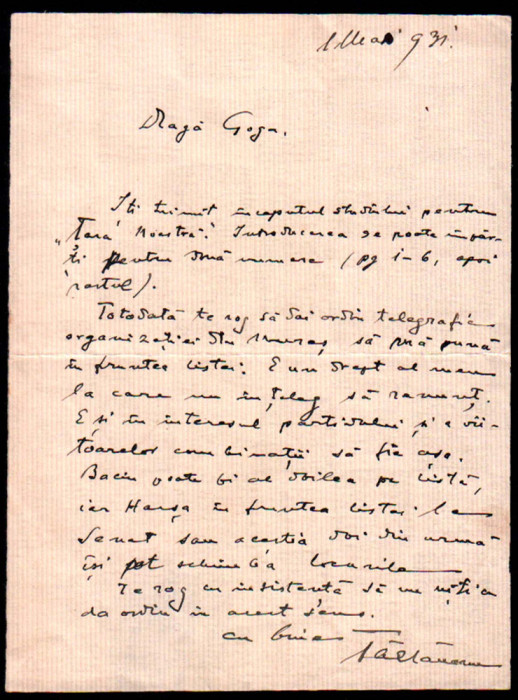 1 Mai 931.
Dragă Goga.
Iți trimit începutul studiului pentru
„Țara Noastră”. Introducerea se poate împăr-
ți pentru două numere (pg 1-6, apoi
restul).
Totodată te rog să dai ordin telegrafic
organizației din Mureș, să mă pună
în fruntea listei. E un drept al meu
la care nu înțeleg să renunț.
E și în interesul partidului și a vii-
toarelor combinații să fie așa.
Baciu poate fi al doilea pe listă,
iar Harșa în fruntea listei la
Senat sau aceștia doi din urmă
își pot schimba locurile
Te rog cu insistență să nu uiți a
da ordin în acest sens.
cu bine
Tăslăuanu